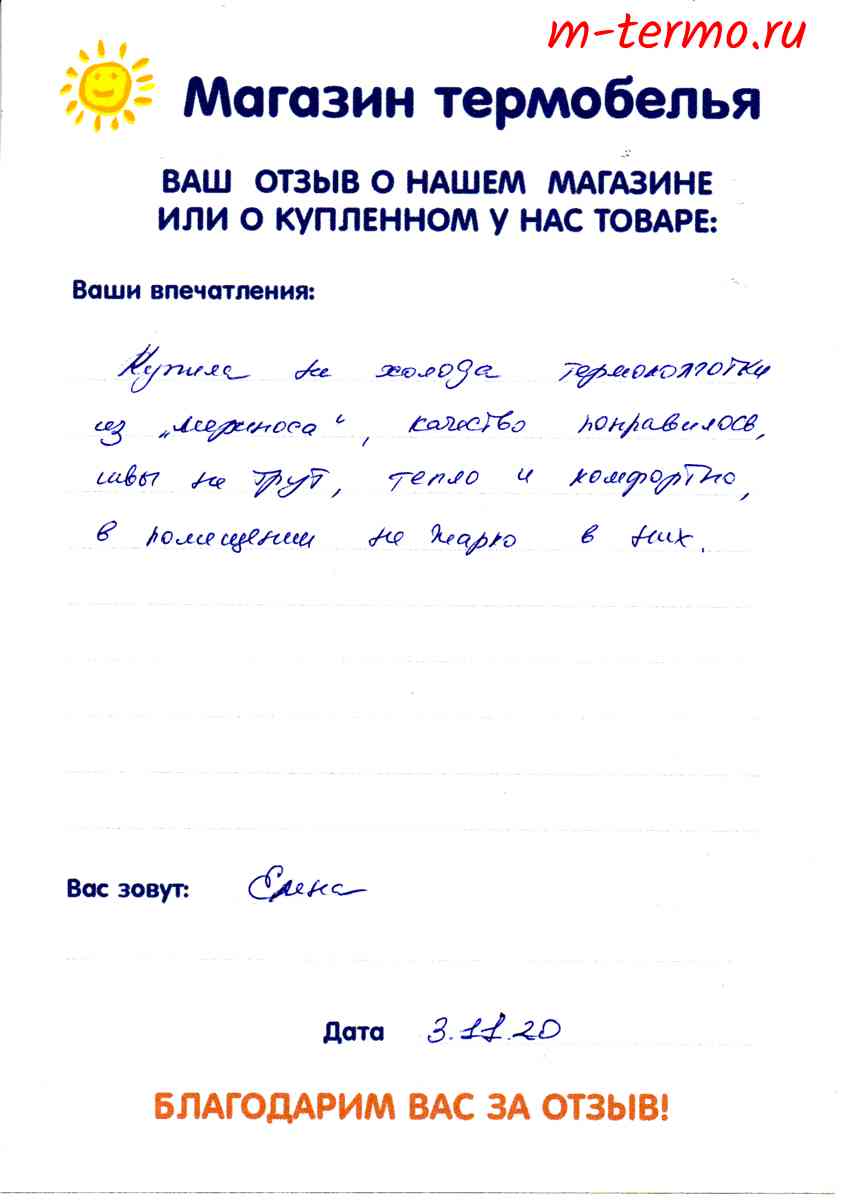 m-termo.ru
Магазин термобелья
ВАШ ОТЗЫВ О НАШЕМ МАГАЗИНЕ
ИЛИ О КУПЛЕННОМ У НАС ТОВАРЕ:
Ваши впечатления:
Купила на холода термоколготки
из „мериноса“, качество понравилось,
швы не трут, тепло и комфортно,
в помещении не жарко в них.
Вас зовут: Елена
Дата 3.11.20
БЛАГОДАРИМ ВАС ЗА ОТЗЫВ!